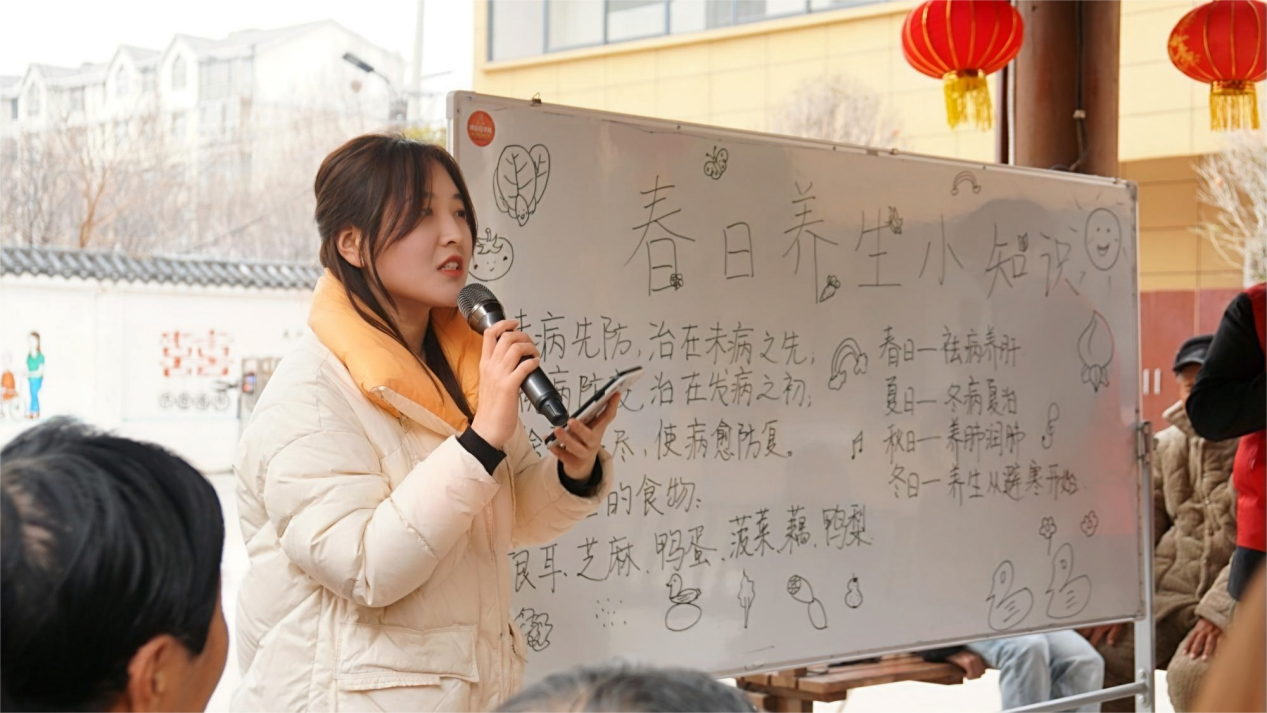 春日养生小知识
病先防,治在未病之先;
病防变,治在发病之初;
尽,使病愈防复。
的食物:
银耳、芝麻、鸭蛋、菠菜、藕、鸭梨
春日—祛病养肝
夏日—冬病夏治
秋日—养肺润肺
冬日—养生从避寒开始